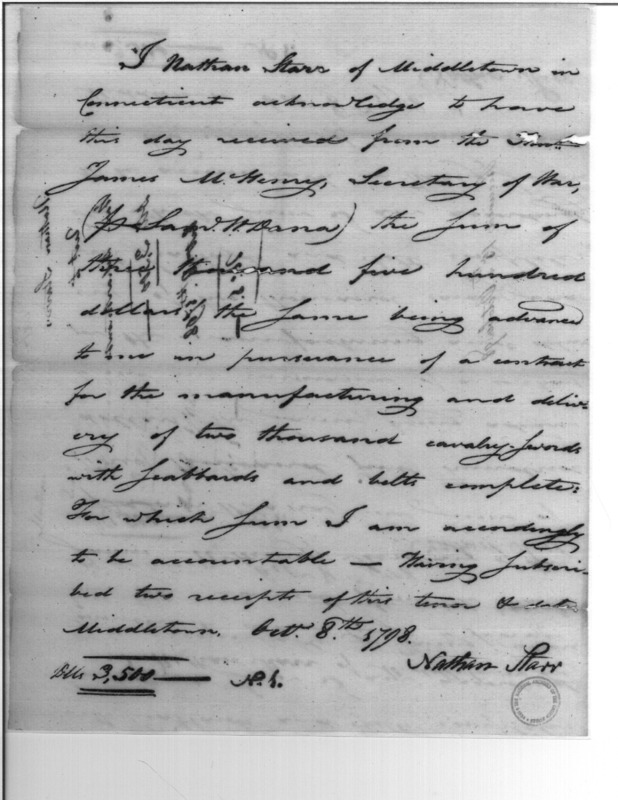 I Nathan Starr of Middletown in
Connecticut acknowledge to have
this day received from the Honble
James McHenry, Secretary of War,
(By Saml. W. Dana) the sum of
three thousand five hundred
dollars, the same being advanced
to me in pursuance of a contract
for the manufacturing and deliv-
ery of two thousand cavalry-swords
with scabbards and belts complete:
For which sum I am accordingly
to be accountable — Having subscri-
bed two receipts of this tenor & date
Middletown. Octr. 8.th 1798.
Nathan Starr
Dlls 3,500